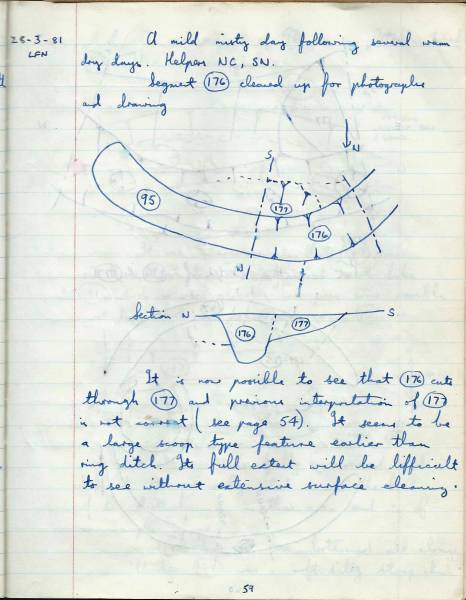 28-3-81
LFN
A mild misty day following several warm
dry days. Helpers NC, SN.
Segment 176 cleaned up for photographs
and drawing
S
N
95
177
176
N
Section N
S
176
177
It is now possible to see that 176 cuts
through 177 and previous interpretation of 177
is not correct (see page 54). It seems to be
a large scoop type feature earlier than
ring ditch. Its full extent will be difficult
to see without extensive surface cleaning.
59